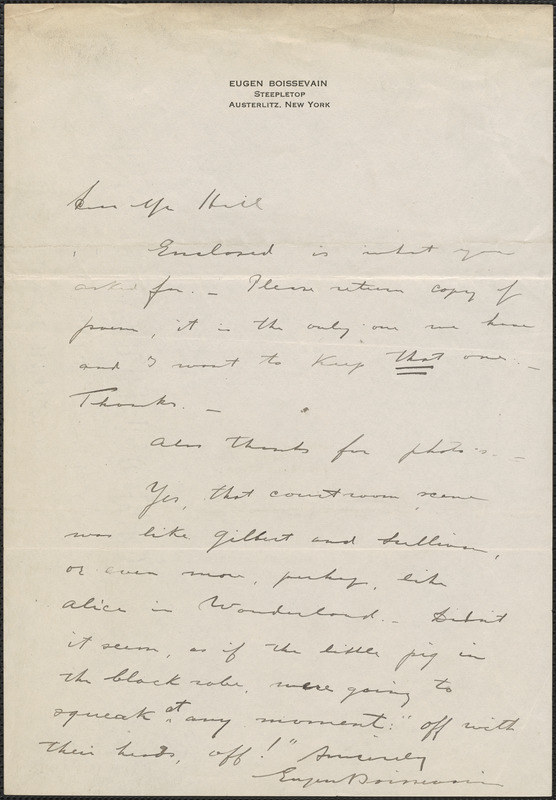 EUGEN BOISSEVAIN
STEEPLETOP
AUSTERLITZ, NEW YORK
Dear Mr Hill
Enclosed is what you
asked for. — Please return copy of
poem, it is the only one we have
and I want to keep that one. —
Thanks. —
Also thanks for photo's. —
Yes, that courtroom scene
was like Gilbert and Sullivan,
or even more, perhap, like
Alice in Wonderland. — Didn't
it seem, as if the little pig in
the black robe, were going to
squeak at any moment: "off with
their heads, off!" Sincerely
Eugen Boissevain